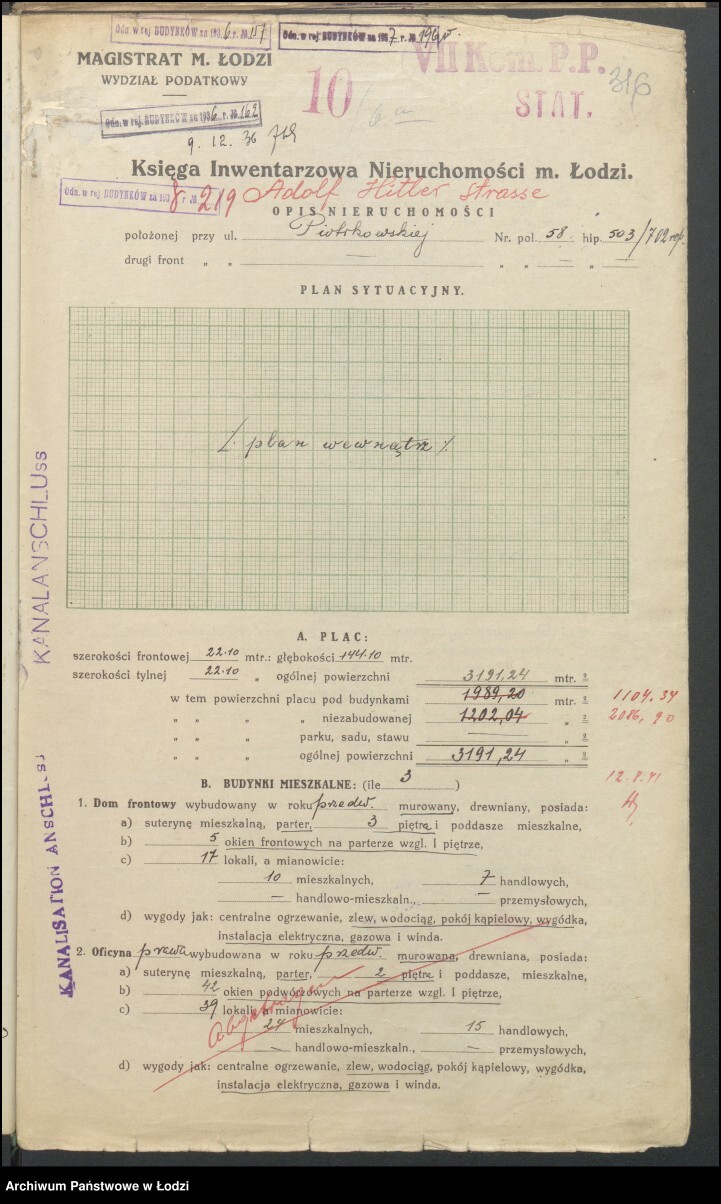 Odn. w rej BUDYNKÓW za 1936 r. № 157
Odn. w rej. BUDYNKÓW za 1937 r. №
MAGISTRAT M. ŁODZI
WYDZIAŁ PODATKOWY
VII Kom. P.P.
STAT.
316
10
6 a
Odn. w rej. BUDYNKÓW za 1936 r. № 162
9. 12. 36
Księga Inwentarzowa Nieruchomości m. Łodzi.
Odn. w rej BUDYNKÓW za 1938 r №. 219
Adolf Hitler Strasse
OPIS NIERUCHOMOŚCI
położonej przy ul. Piotrkowskiej Nr. pol. 58 hip. 503/702 rep.
drugi front „ „ — „ „ — „ —
PLAN SYTUACYJNY.
/. plan wewnątrz /.
KANALANSCHLUss
KANALISATION ANSCHL
A. PLAC:
szerokości frontowej 22.10 mtr.: głębokości 144.10 mtr.
szerokości tylnej 22.10 „ ogólnej powierzchni 3191,24 mtr. 2
w tem powierzchni placu pod budynkami 1989,20 mtr. 2 1104.34
„ „ „ „ niezabudowanej 1202,04 „ 2 2086,90
„ „ „ parku, sadu, stawu — „ 2
„ „ „ ogólnej powierzchni 3191,24 „ 2
12.8.41
B. BUDYNKI MIESZKALNE: (ile 3 )
1. Dom frontowy wybudowany w roku przedw. murowany, drewniany, posiada:
a) suterynę mieszkalną, parter, 3 piętra i poddasze mieszkalne,
b) 5 okien frontowych na parterze wzgl. I piętrze,
c) 17 lokali, a mianowicie:
10 mieszkalnych, 7 handlowych,
— handlowo-mieszkaln., — przemysłowych,
d) wygody jak: centralne ogrzewanie, zlew, wodociąg, pokój kąpielowy, wygódka,
instalacja elektryczna, gazowa i winda.
2. Oficyna prawa wybudowana w roku przedw. murowana, drewniana, posiada:
a) suterynę mieszkalną, parter, 2 piętra i poddasze, mieszkalne,
b) 42 okien podwórzowych na parterze wzgl. I piętrze,
c) 39 lokali, a mianowicie:
24 mieszkalnych, 15 handlowych,
— handlowo-mieszkaln., — przemysłowych,
d) wygody jak: centralne ogrzewanie, zlew, wodociąg, pokój kąpielowy, wygódka,
instalacja elektryczna, gazowa i winda.
Archiwum Państwowe w Łodzi